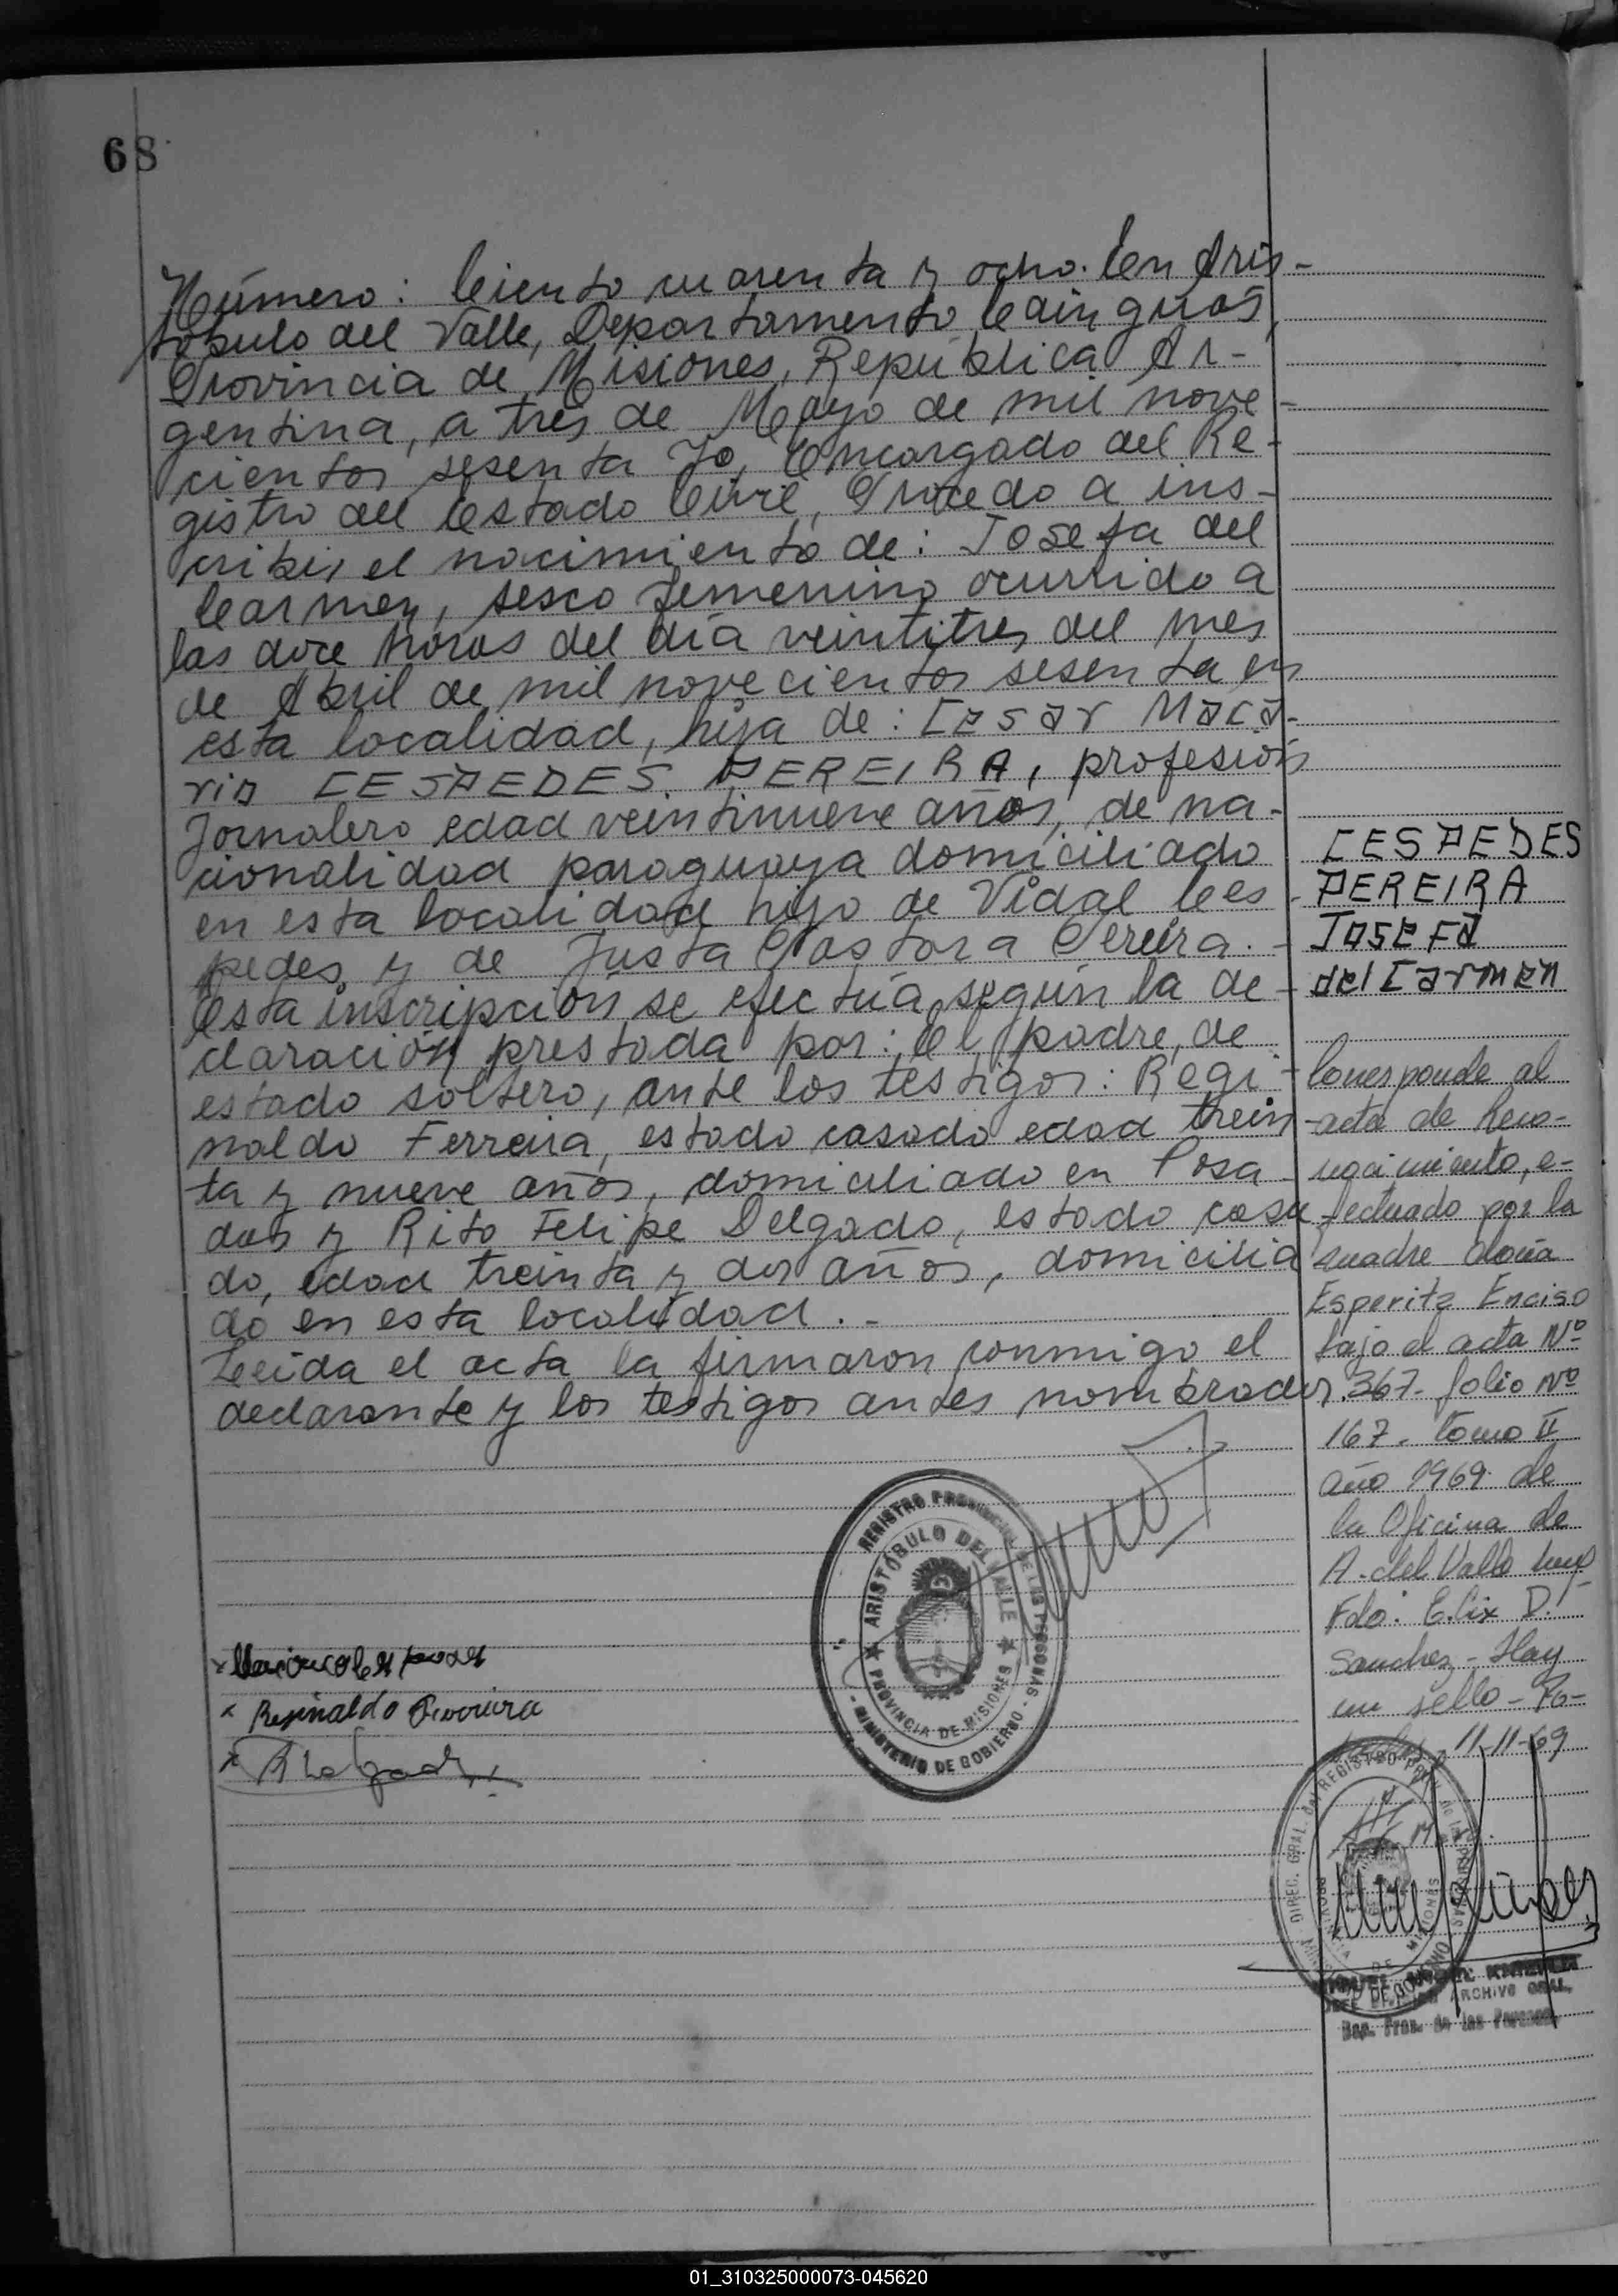 68
Número: Ciento cuarenta y ocho. En Aris-
tóbulo del Valle, Departamento Cainguás,
Provincia de Misiones, República Ar-
gentina, a tres de Mayo de mil nove-
cientos sesenta Yo, Encargado del Re-
gistro del Estado Civil, Procedo a ins-
cribir el nacimiento de: Josefa del
Carmen, sexo femenino ocurrido a
las doce horas del día veintitres del mes
de Abril de mil novecientos sesenta en
esta localidad, hija de: Cesar Maca-
rio CESPEDES PEREIRA, profesión
Jornalero edad veintinueve años, de na-
cionalidad paraguaya domiciliado
en esta localidad hijo de Vidal Ces-
pedes y de Justa Pastora Pereira.-
Esta inscripción se efectúa según la de-
claración prestada por: el padre, de
estado soltero, ante los testigos: Regi-
naldo Ferreira, estado casado edad trein-
ta y nueve años, domiciliado en Posa-
das y Rito Felipe Delgado, estado casa-
do, edad treinta y dos años, domicilia
do en esta localidad.-
Leida el acta la firmaron conmigo el
declarante y los testigos antes nombrados.
CESPEDES
PEREIRA
Josefa
del Carmen
Corresponde al
acta de Reco-
nocimiento, e-
fectuado por la
madre doña
Esperita Enciso
bajo el acta Nº
367- folio Nº
167- tomo II
año 1969 de
la Oficina de
A. del Valle
Fdo: Elix D.
Sanchez - Hay
un sello - Po-
11-11-69
REGISTRO PROVINCIAL DE LAS PERSONAS
ARISTÓBULO DEL VALLE
PROVINCIA DE MISIONES
- MINISTERIO DE GOBIERNO -
x Reginaldo Ferreira
x R Delgado
DIREC. GRAL. del REGISTRO PROV. de las PERSONAS
PROVINCIA DE MISIONES
JEFE DIVISION ARCHIVO GRAL.
Rep. Prov. de las Personas
01_310325000073-045620